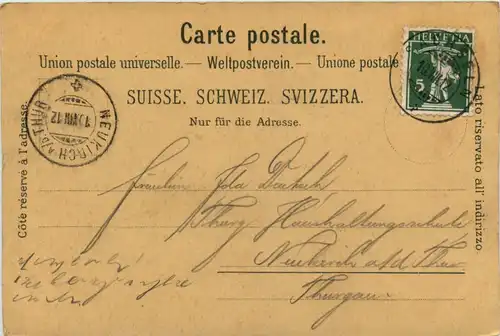 Carte postale.
Union postale universelle. — Weltpostverein. — Unione postale
SUISSE. SCHWEIZ. SVIZZERA.
Nur für die Adresse.
Côté réservé à l'adresse.
Lato riservato all' indirizzo.
HELVETIA
5
NEUKIRCH a/d THUR
VIII 12
Fräulein Ida
Thurg. Haushaltungsschule
Neukirch a/d Thur
Thurgau